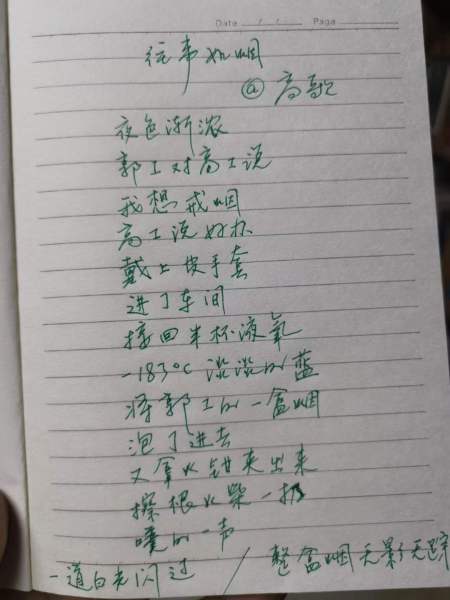 Date / / Page
往事如烟
@高歌
夜色渐浓
郭工对高工说
我想戒烟
高工说好林
戴上皮手套
进了车间
接回半杯液氧
-183°C 淡淡的蓝
将郭工的一盒烟
泡了进去
又拿火钳夹出来
擦根火柴一扔
噗的一声
一道白光闪过 / 整盒烟无影无踪